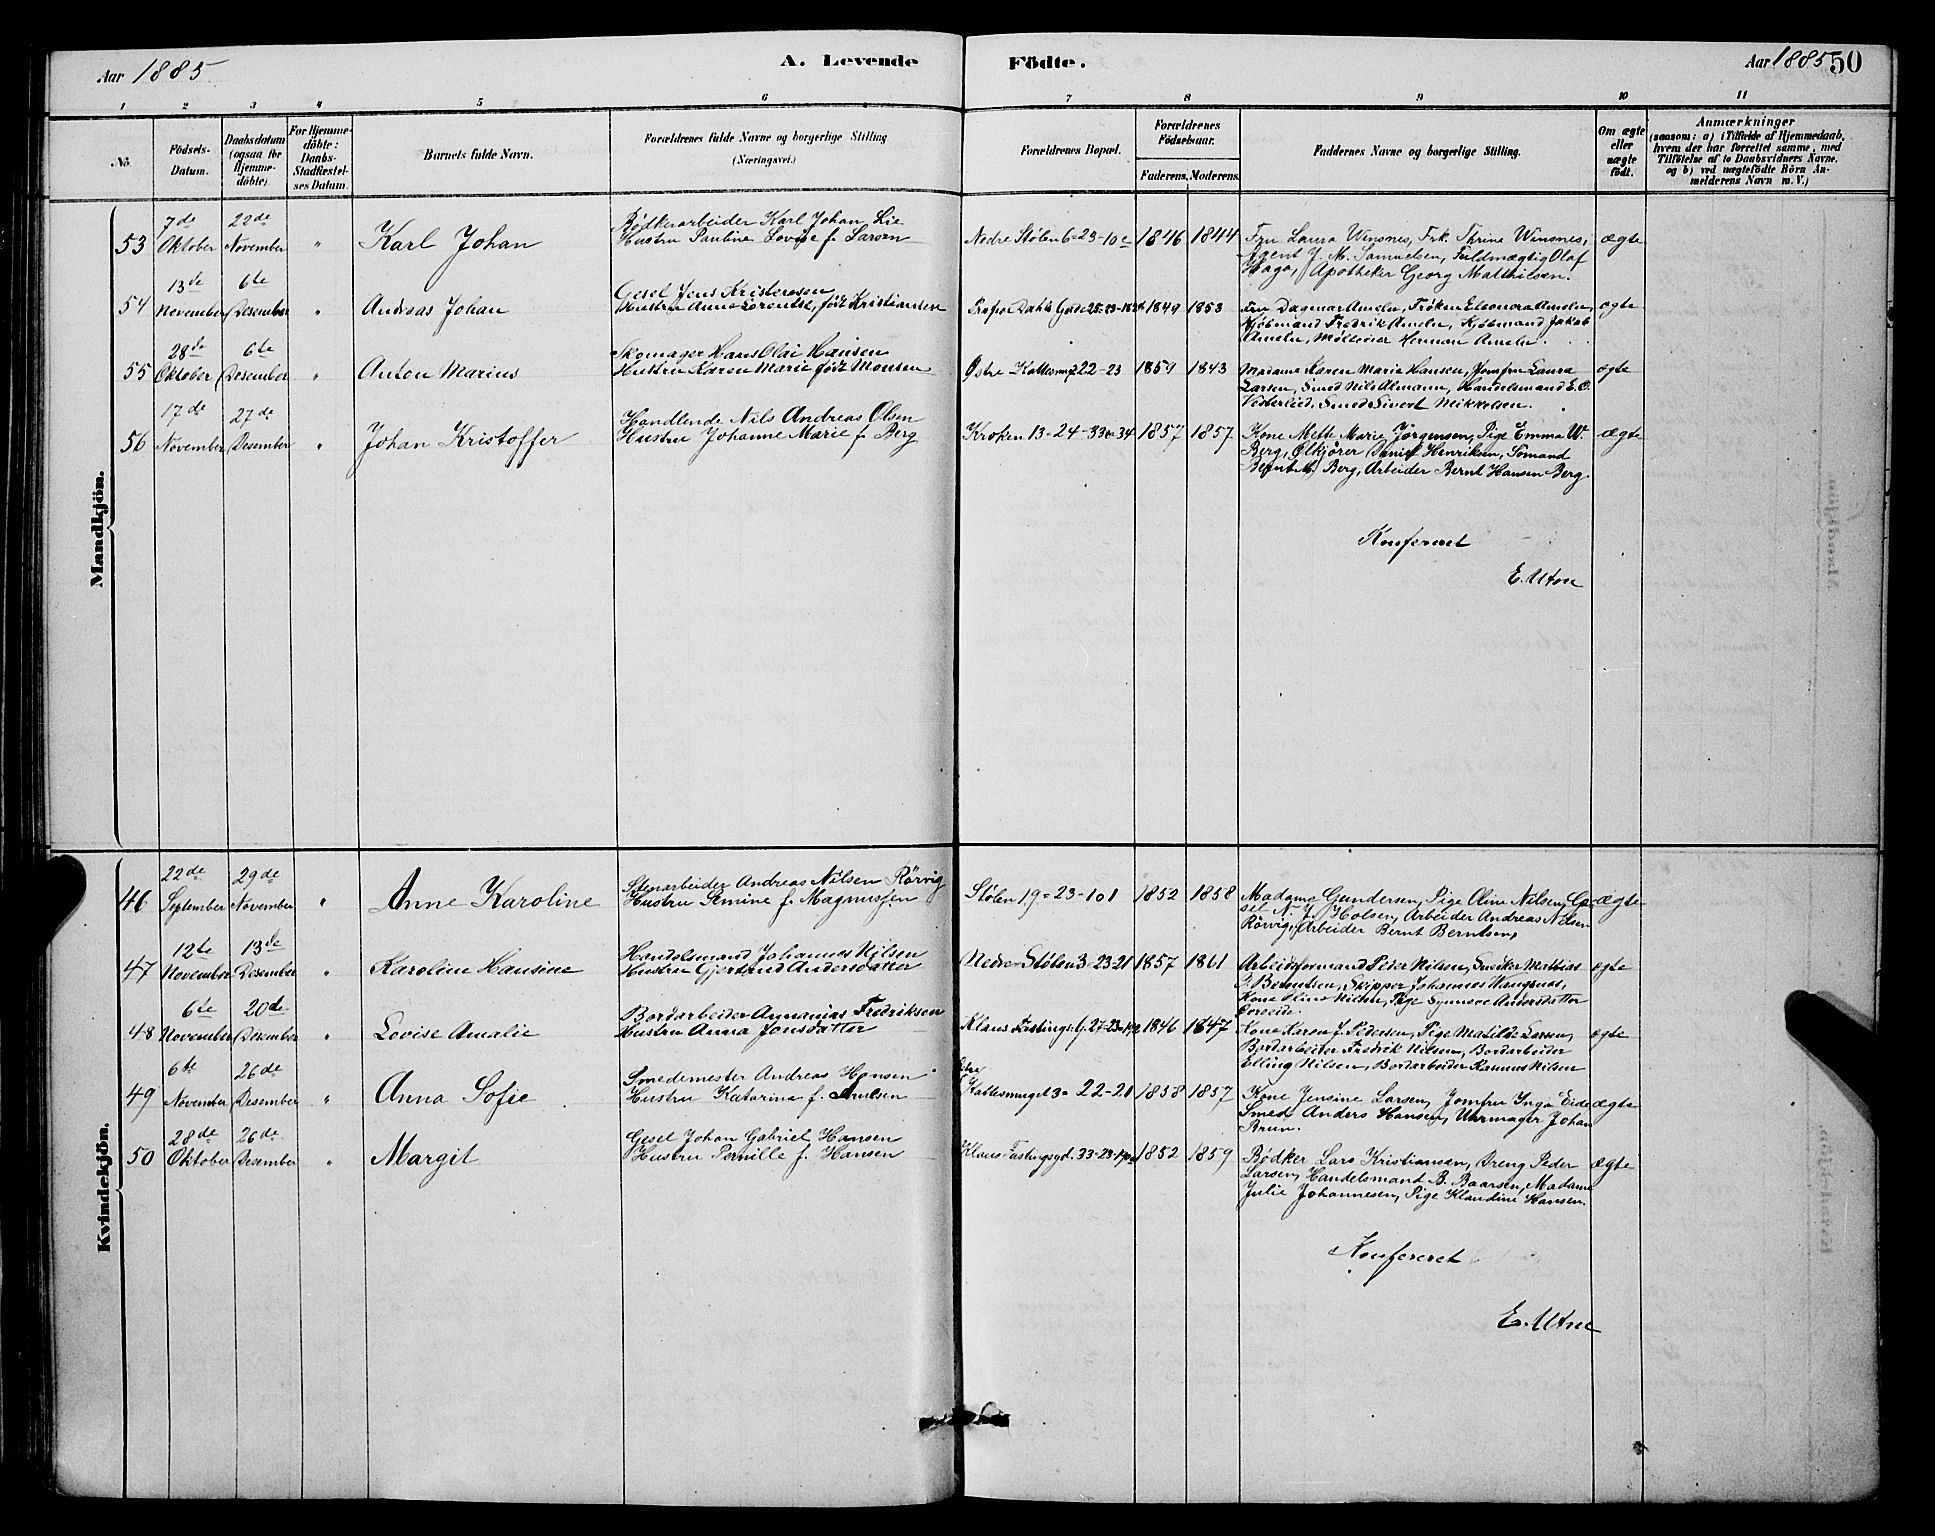 Aar 1885 A. Levende Födte. Aar 1885 50
1 2 3 4 5 6 7 8 9 10 11
No
Födsels-Datum.
Daabsdatum (ogsaa for Hjemme-döbte)
For Hjemme-döbte: Daabs-Stadfæstel-ses Datum.
Barnets fulde Navn.
Forældrenes fulde Navne og borgerlige Stilling (Næringsvei.)
Forældrenes Bopæl.
Forældrenes Födselsaar. Faderens. Moderens.
Faddernes Navne og borgerlige Stilling.
Om ægte eller uægte födt.
Anmærkninger
(saasom: a) i Tilfælde af Hjemmedaab, hvem der har forrettet samme, med Tilföielse af to Daabsvidners Navne, og b) ved uægtefödte Börn An-melderens Navn m. V.)
Mandkjön.
53 7de Oktober 22de November " Karl Johan
Bödkerarbeider Karl Johan Lie
Hustru Pauline Lovise f. Larsen
Nedre Stölen 6-23-10c 1846 1844
Fru Laura Winsnes, Frk. Thrine Winsnes,
Agent J. M. Samuelsen, Fuldmægtig Olaf
Hage, Apotheker Georg Matthilsen.
ægte
54 13de November 6te Desember " Andreas Johan
Gesel Jens Kristensen
Hustru Anne Lorentse, födt Kristiansen
1849 1853
Fru Dagmar Ameln, Fröken Eleonora Ameln,
Kjöbmand Fredrik Ameln, Kjöbmand Jakob
Ameln, Herman Ameln.
ægte
55 28de Oktober 6te Desember " Anton Marius
Skomager Hans Olai Hansen
Hustru Karen Marie födt Monsen
Östre Kattesmug 22-23 1859 1843
Madame Karen Marie Hansen, Jomfru Laura
Larsen, Smed Nils Almann, Handelsmand E. O.
Vesterlied, Smed Sivert Mikkelsen.
ægte
56 17de November 27de Desember " Johan Kristoffer
Handlende Nils Andreas Olsen
Hustru Johanne Marie f. Berg
Kroken 13-24-33-34 1857 1857
Kone Mette Marie Jörgensen, Pige Emma W.
Berg, Ølkjörer Henriksen, Sömand
Bernt Berg, Arbeider Bernt Hansen Berg.
ægte
Konfereret
E. Utne
Kvindekjön.
46 22de September 29de November " Anne Karoline
Stenarbeider Andreas Nilsen Rörvig
Hustru Semine f. Magnussen
Stölen 19-23-101 1852 1858
Madame Gundersen, Pige Oline Nilsen, Ge-
sel N. J. Holsen, Arbeider Andreas Nilsen
Rörvig, Arbeider Bernt Berntsen,
ægte
47 12te November 13de Desember " Karoline Hansine
Handelsmand Johannes Nilsen
Hustru Gjertrud Andersdatter
Nedre Stölen 3-23-21 1857 1861
Arbeidsformand Peder Nilsen, Snedker Mathias
Berentsen, Skipper Johannes Vangsnes,
Kone Oline Nilsen, Pige Synneve Andersdatter
ægte
48 6te November 20de Desember " Lovise Amalie
Bordarbeider Annanias Fredriksen
Hustru Anna Jonsdatter
Klaus Fastingsg. 27-23 1846 1847
Kone Karen J. Pedersen, Pige Matilde Larsen,
Bordarbeider Fredrik Nilsen, Bordarbeider
Elling Nilsen, Bordarbeider Rasmus Nilsen
ægte
49 6te November 26de Desember " Anna Sofie
Smedemester Andreas Hansen
Hustru Katarina f. Amlsen
Östre Kattesmuget 3-22-21 1858 1857
Kone Jensine Larsen, Jomfru Inga Eide
Smed Anders Hansen, Uhrmager Johan
Brun.
ægte
50 28de Oktober 26de Desember " Margit
Gesel Johan Gabriel Hansen
Hustru Pernille f. Hansen
Klaus Fastingsgd. 33-23 1852 1859
Bödker Lars Kristiansen, Dreng Peder
Larsen, Handelsmand B. Baarsen, Madame
Julie Johannesen, Pige Klaudine Hansen.
ægte
Konfereret
E. Utne